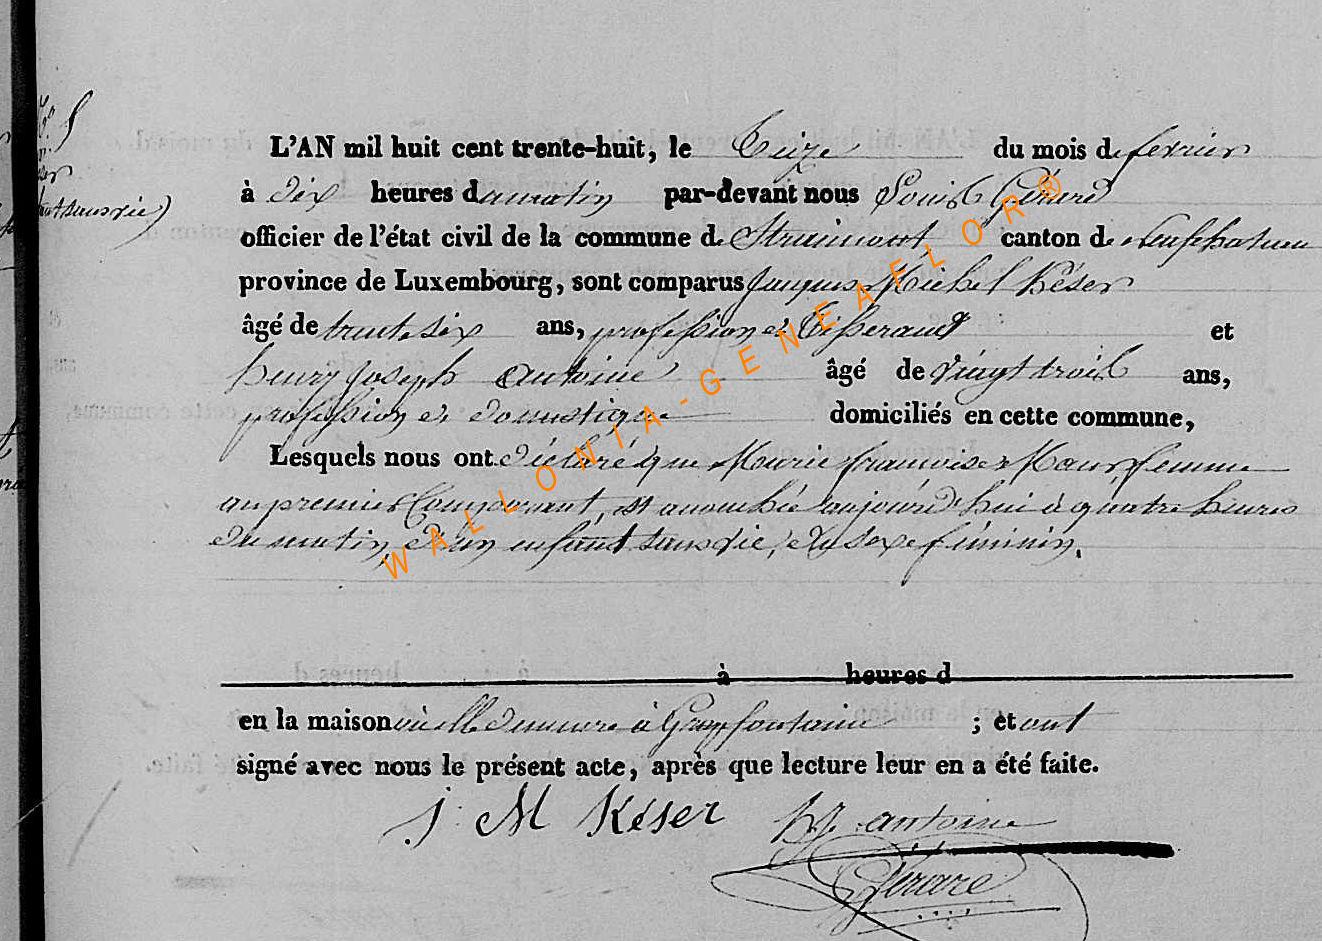 ant sans vie)
L'AN mil huit cent trente-huit, le Treize du mois de fevrier
à Dix heures du matin par-devant nous Louis Gérard
officier de l'état civil de la commune de Straimont, canton de neufchateau
province de Luxembourg, sont comparus Jacques Michel Késer
âgé de trente six ans, profession de Tisserand et
henry Joseph Antoine âgé de vingt trois ans,
profession de domestique domiciliés en cette commune,
Lesquels nous ont Déclaré que Marie francoise femme
au premier Comparant, est accouchée aujourd'hui à quatre heures
du matin, d'un enfant sans vie, du sexe féminin.
à heures d
en la maison où elle demeure à Grapfontaine ; et ont
signé avec nous le présent acte, après que lecture leur en a été faite.
J. M Késer hy antoine
Gérard
WALLONIA-GENEAFLOR®